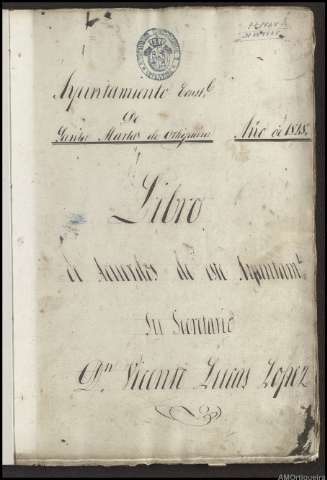 Ayuntamiento Const.l
de
Santa Marta de Ortigueira Año de 1843.
Libro
de Acuerdos de este Ayuntam.to
Su Secretario
Dn Vicente Lucas Lopez
AMOrtigueira